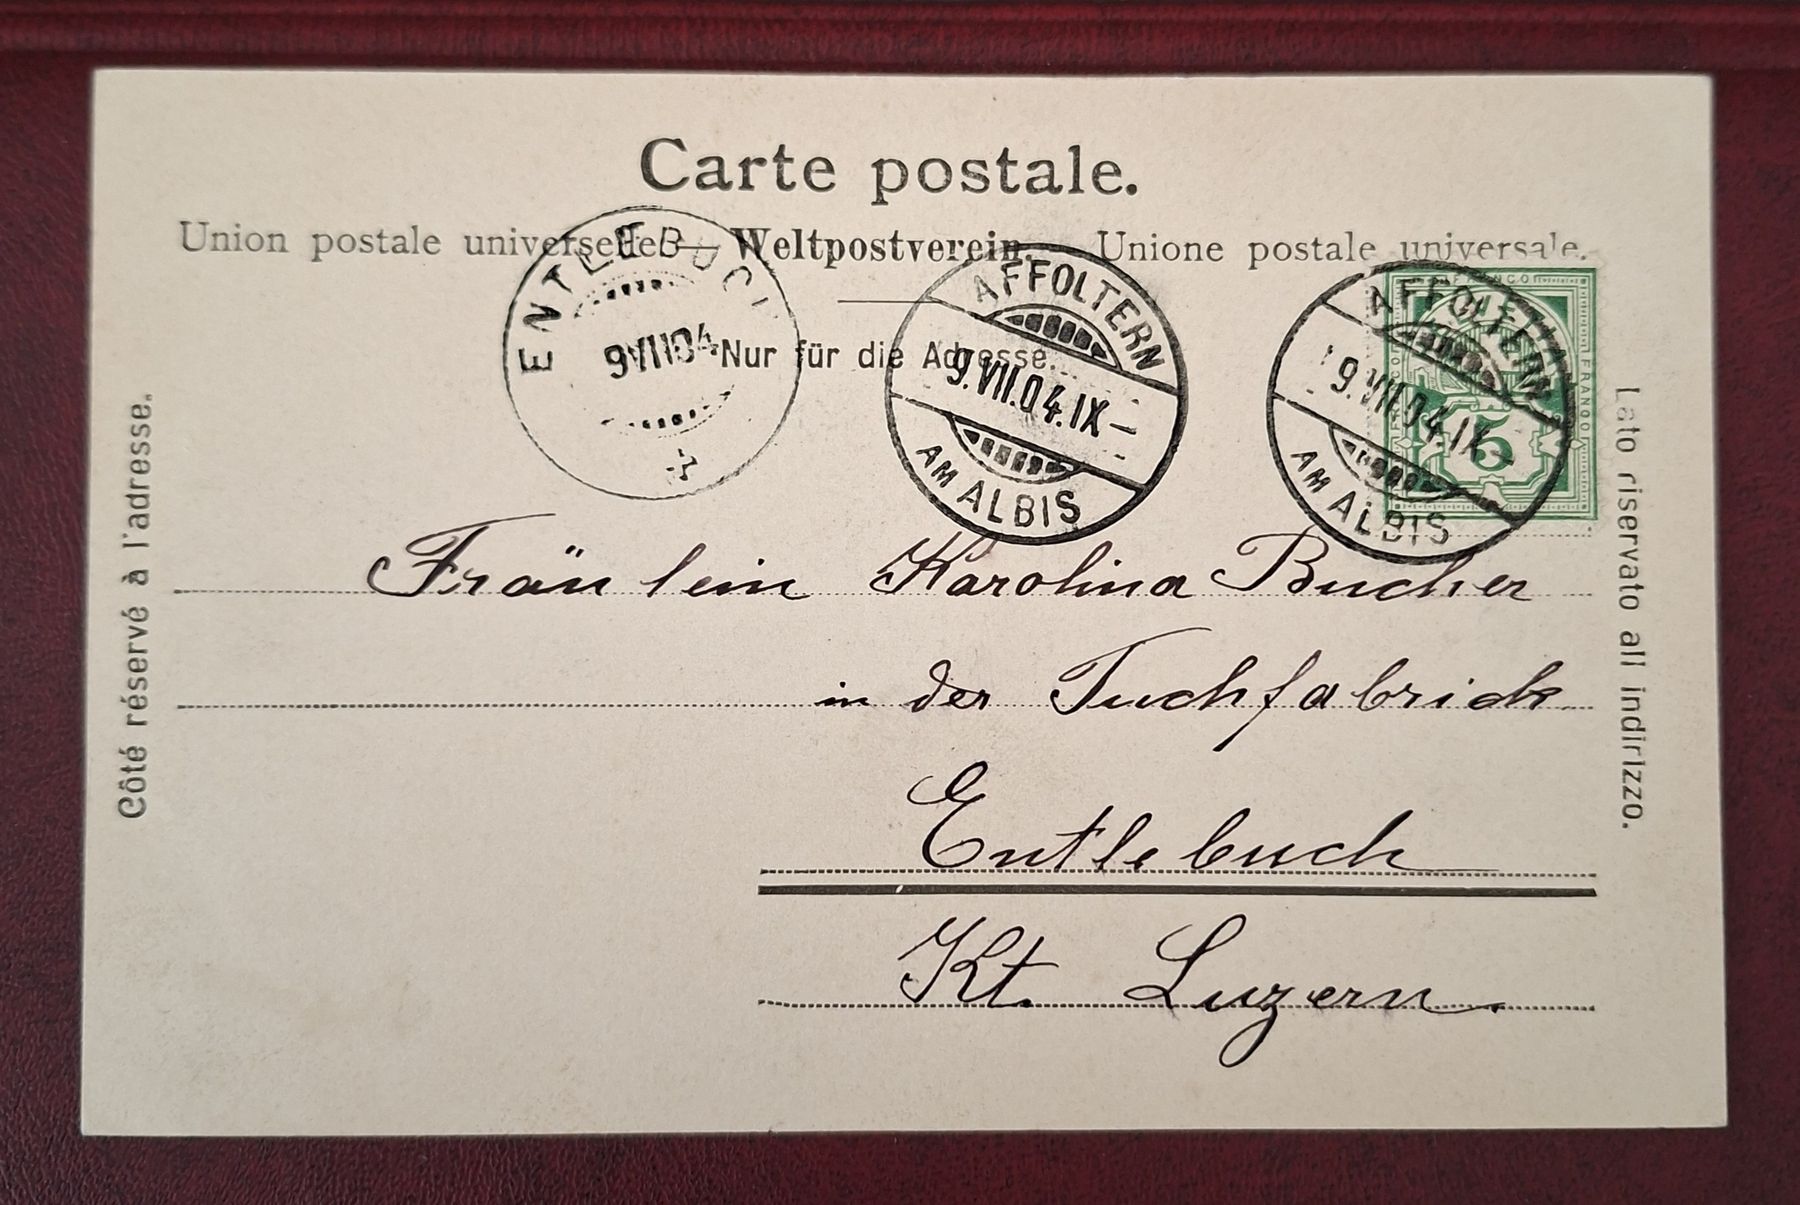 Carte postale.
Union postale universelle — Weltpostverein. Unione postale universale.
ENTLEBUCH
9 VII 04
Nur für die Adresse.
AFFOLTERN
9.VII.04.IX–
AM ALBIS
AFFOLTERN
9.VII.04.IX–
AM ALBIS
FRANCO
FRANCO
5
Côté réservé à l'adresse.
Lato riservato all indirizzo.
Fräulein Karolina Bucher
in der Tuchfabrick
Entlebuch
Kt. Luzern.